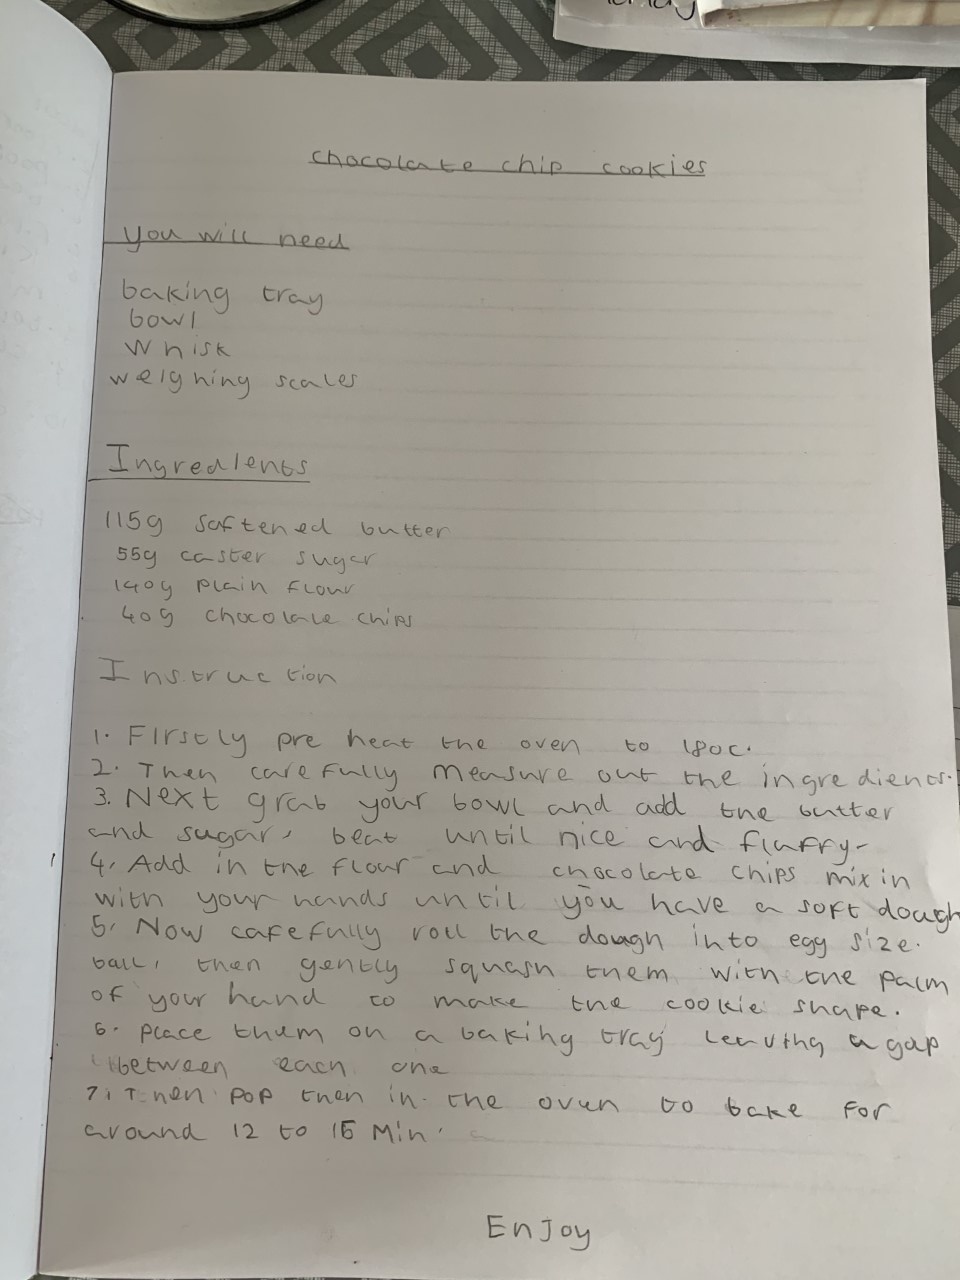 chocolate chip cookies
you will need
baking tray
bowl
whisk
weighing scales
Ingredients
115g softened butter
55g caster sugar
140g plain flour
40g chocolate chips
Instruction
1. Firstly pre heat the oven to 180c.
2. Then carefully measure out the ingredients.
3. Next grab your bowl and add the butter
and sugar, beat until nice and fluffy-
4, Add in the flour and chocolate chips mix in
with your hands until you have a soft dough
5, Now carefully roll the dough into egg size.
ball, then gently squash them with the palm
of your hand to make the cookie shape.
6. place them on a baking tray leaving a gap
between each one
7, Then pop then in. the oven to bake for
around 12 to 15 Min.
Enjoy